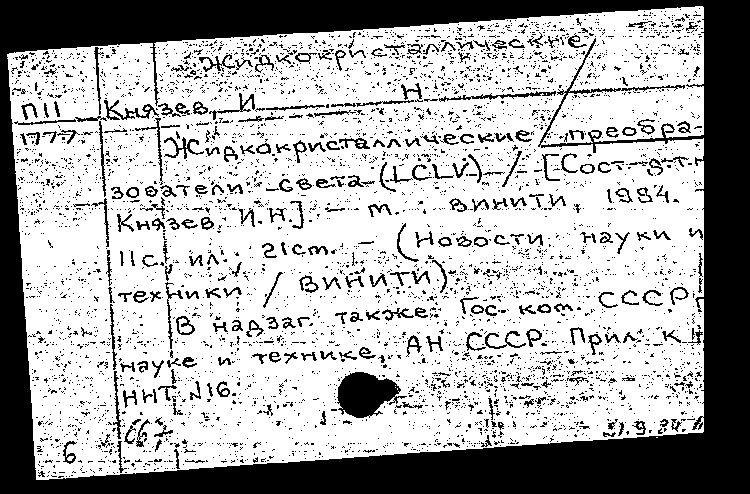 Жидкокристаллические
П11 Князев, И Н
1777
Жидкокристаллические / преобра-
зователи света (LCLV) / [Сост. д.т.н
Князев И.Н.]. - М. : ВИНИТИ, 1984.
11с., ил.; 21ст. - (Новости науки и
техники / ВИНИТИ).
В надзаг. также: Гос. ком. СССР
науке и технике, АН СССР. Прил. к
ННТ №16.
667
6